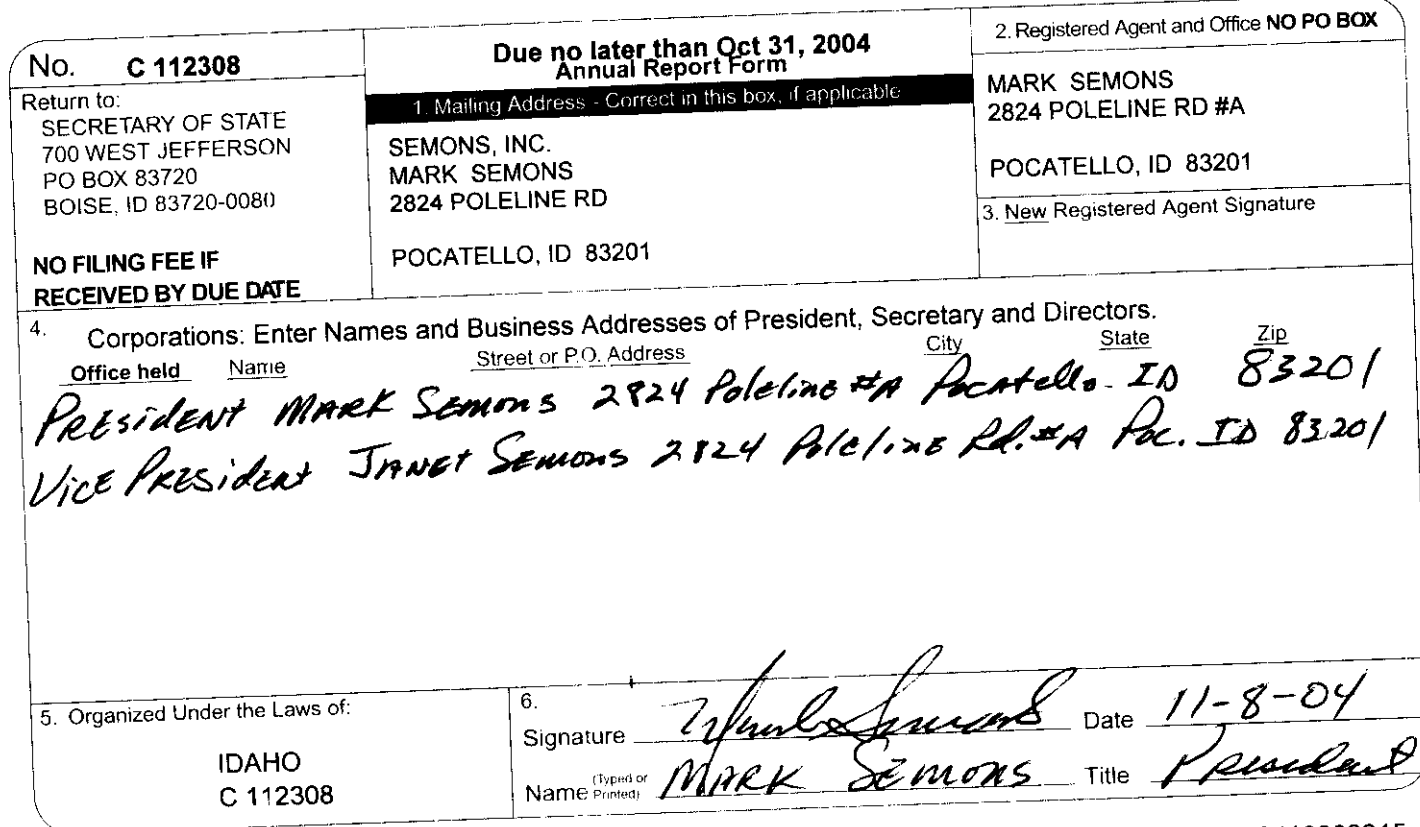 No. C 112308
Return to:
SECRETARY OF STATE
700 WEST JEFFERSON
PO BOX 83720
BOISE, ID 83720-0080
NO FILING FEE IF
RECEIVED BY DUE DATE
Due no later than Oct 31, 2004
Annual Report Form
1. Mailing Address - Correct in this box, if applicable
SEMONS, INC.
MARK SEMONS
2824 POLELINE RD
POCATELLO, ID 83201
2. Registered Agent and Office NO PO BOX
MARK SEMONS
2824 POLELINE RD #A
POCATELLO, ID 83201
3. New Registered Agent Signature
4. Corporations: Enter Names and Business Addresses of President, Secretary and Directors.
Office held Name Street or P.O. Address City State Zip
President Mark Semons 2824 Poleline #A Pocatello - ID 83201
Vice President Janet Semons 2824 Poleline Rd. #A Poc. ID 83201
5. Organized Under the Laws of:
IDAHO
C 112308
6.
Signature Mark Semons Date 11-8-04
Name (Typed or Printed) MARK SEMONS Title President